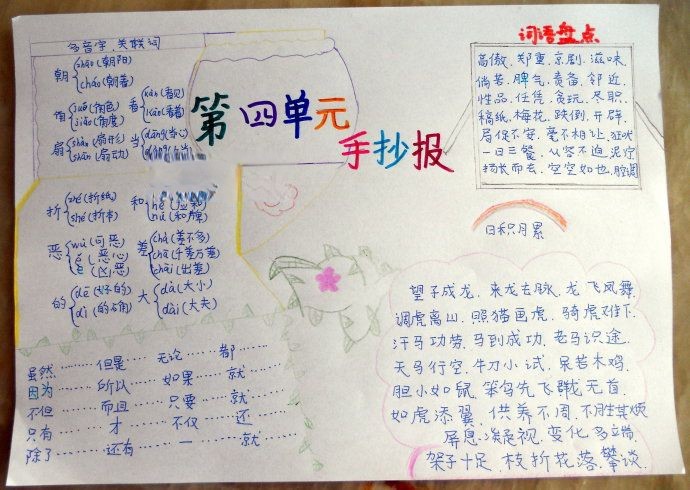 多音字、关联词
朝 zhāo (朝阳)
cháo (朝着)
角 jué (角色)
jiǎo (角度)
看 kàn (看见)
kān (看着)
扇 shàn (扇形)
shān (扇动)
当 dāng (当心)
折 zhé (折纸)
shé (折本)
和
hú (和牌)
恶 wù (可恶)
ě (恶心)
è (凶恶)
差 chà (差不多)
chā (千差万差)
chāi (出差)
的 de (好的)
dì (的确)
大 dà (大小)
dài (大夫)
虽然……但是……无论……都
因为……所以……如果……就
不但……而且……只要……就
只有……才……不仅……还
除了……还有……一……就
第四单元
手抄报
词语盘点
高傲、郑重、京剧、滋味
倘若、脾气、责备、邻近
性品、任凭、贪玩、尽职
稿纸、梅花、跌倒、开辟
局促不安、毫不相让、狂吠
一日三餐、从容不迫、泥泞
扬长而去、空空如也、腔调
日积月累
望子成龙、来龙去脉、龙飞凤舞
调虎离山、照猫画虎、骑虎难下
汗马功劳、马到成功、老马识途
天马行空、牛刀小试、呆若木鸡
胆小如鼠、笨鸟先飞、群龙无首
如虎添翼、供养不周、不胜其烦
屏息凝视、变化多端
架子十足、枝折花落、攀谈